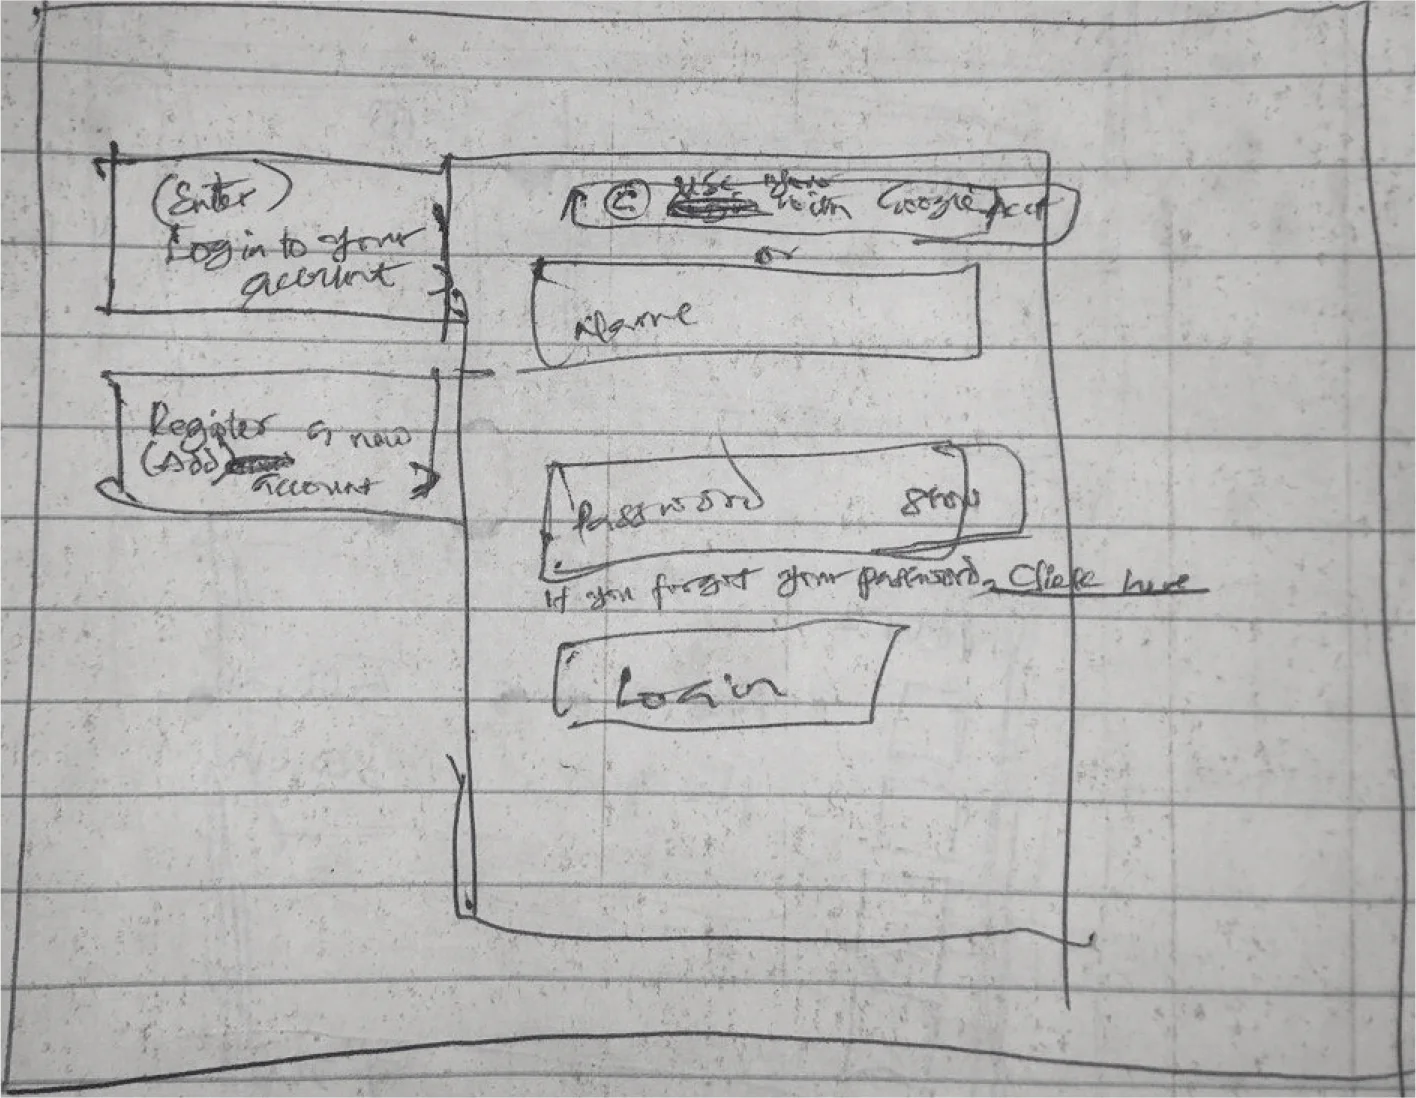 (Enter)
Login to your
account
Register a new
(Add)
account
G use your
Google Acct
or
Name
Password show
If you forgot your password, Click here
Login